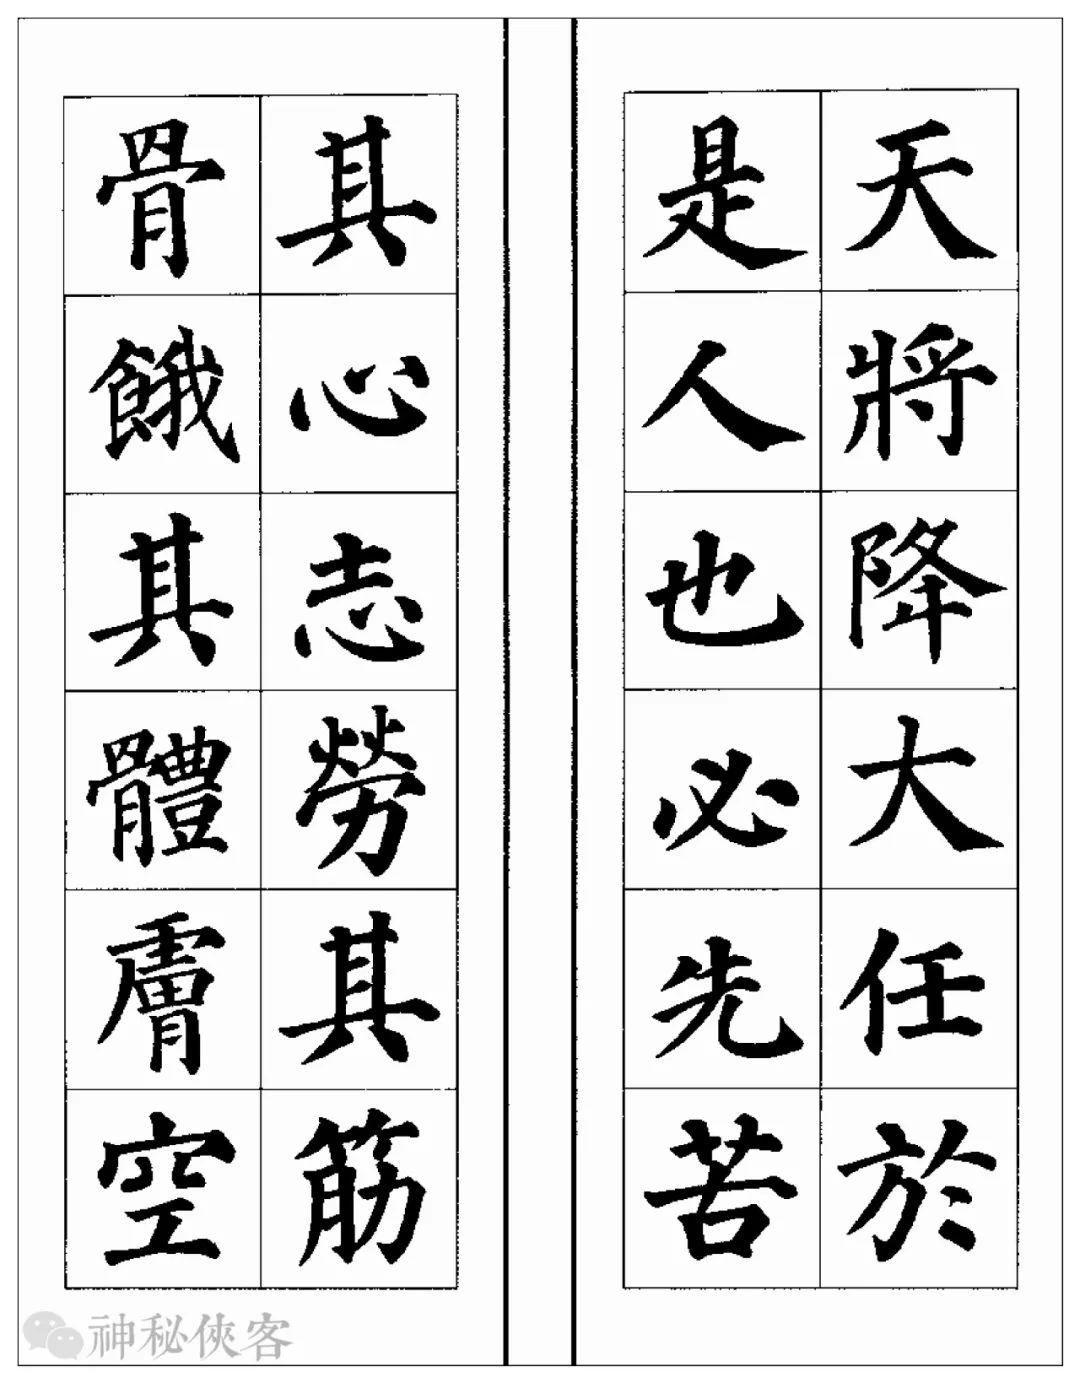 天將降大任於
是人也必先苦
其心志勞其筋
骨餓其體膚空
神秘俠客